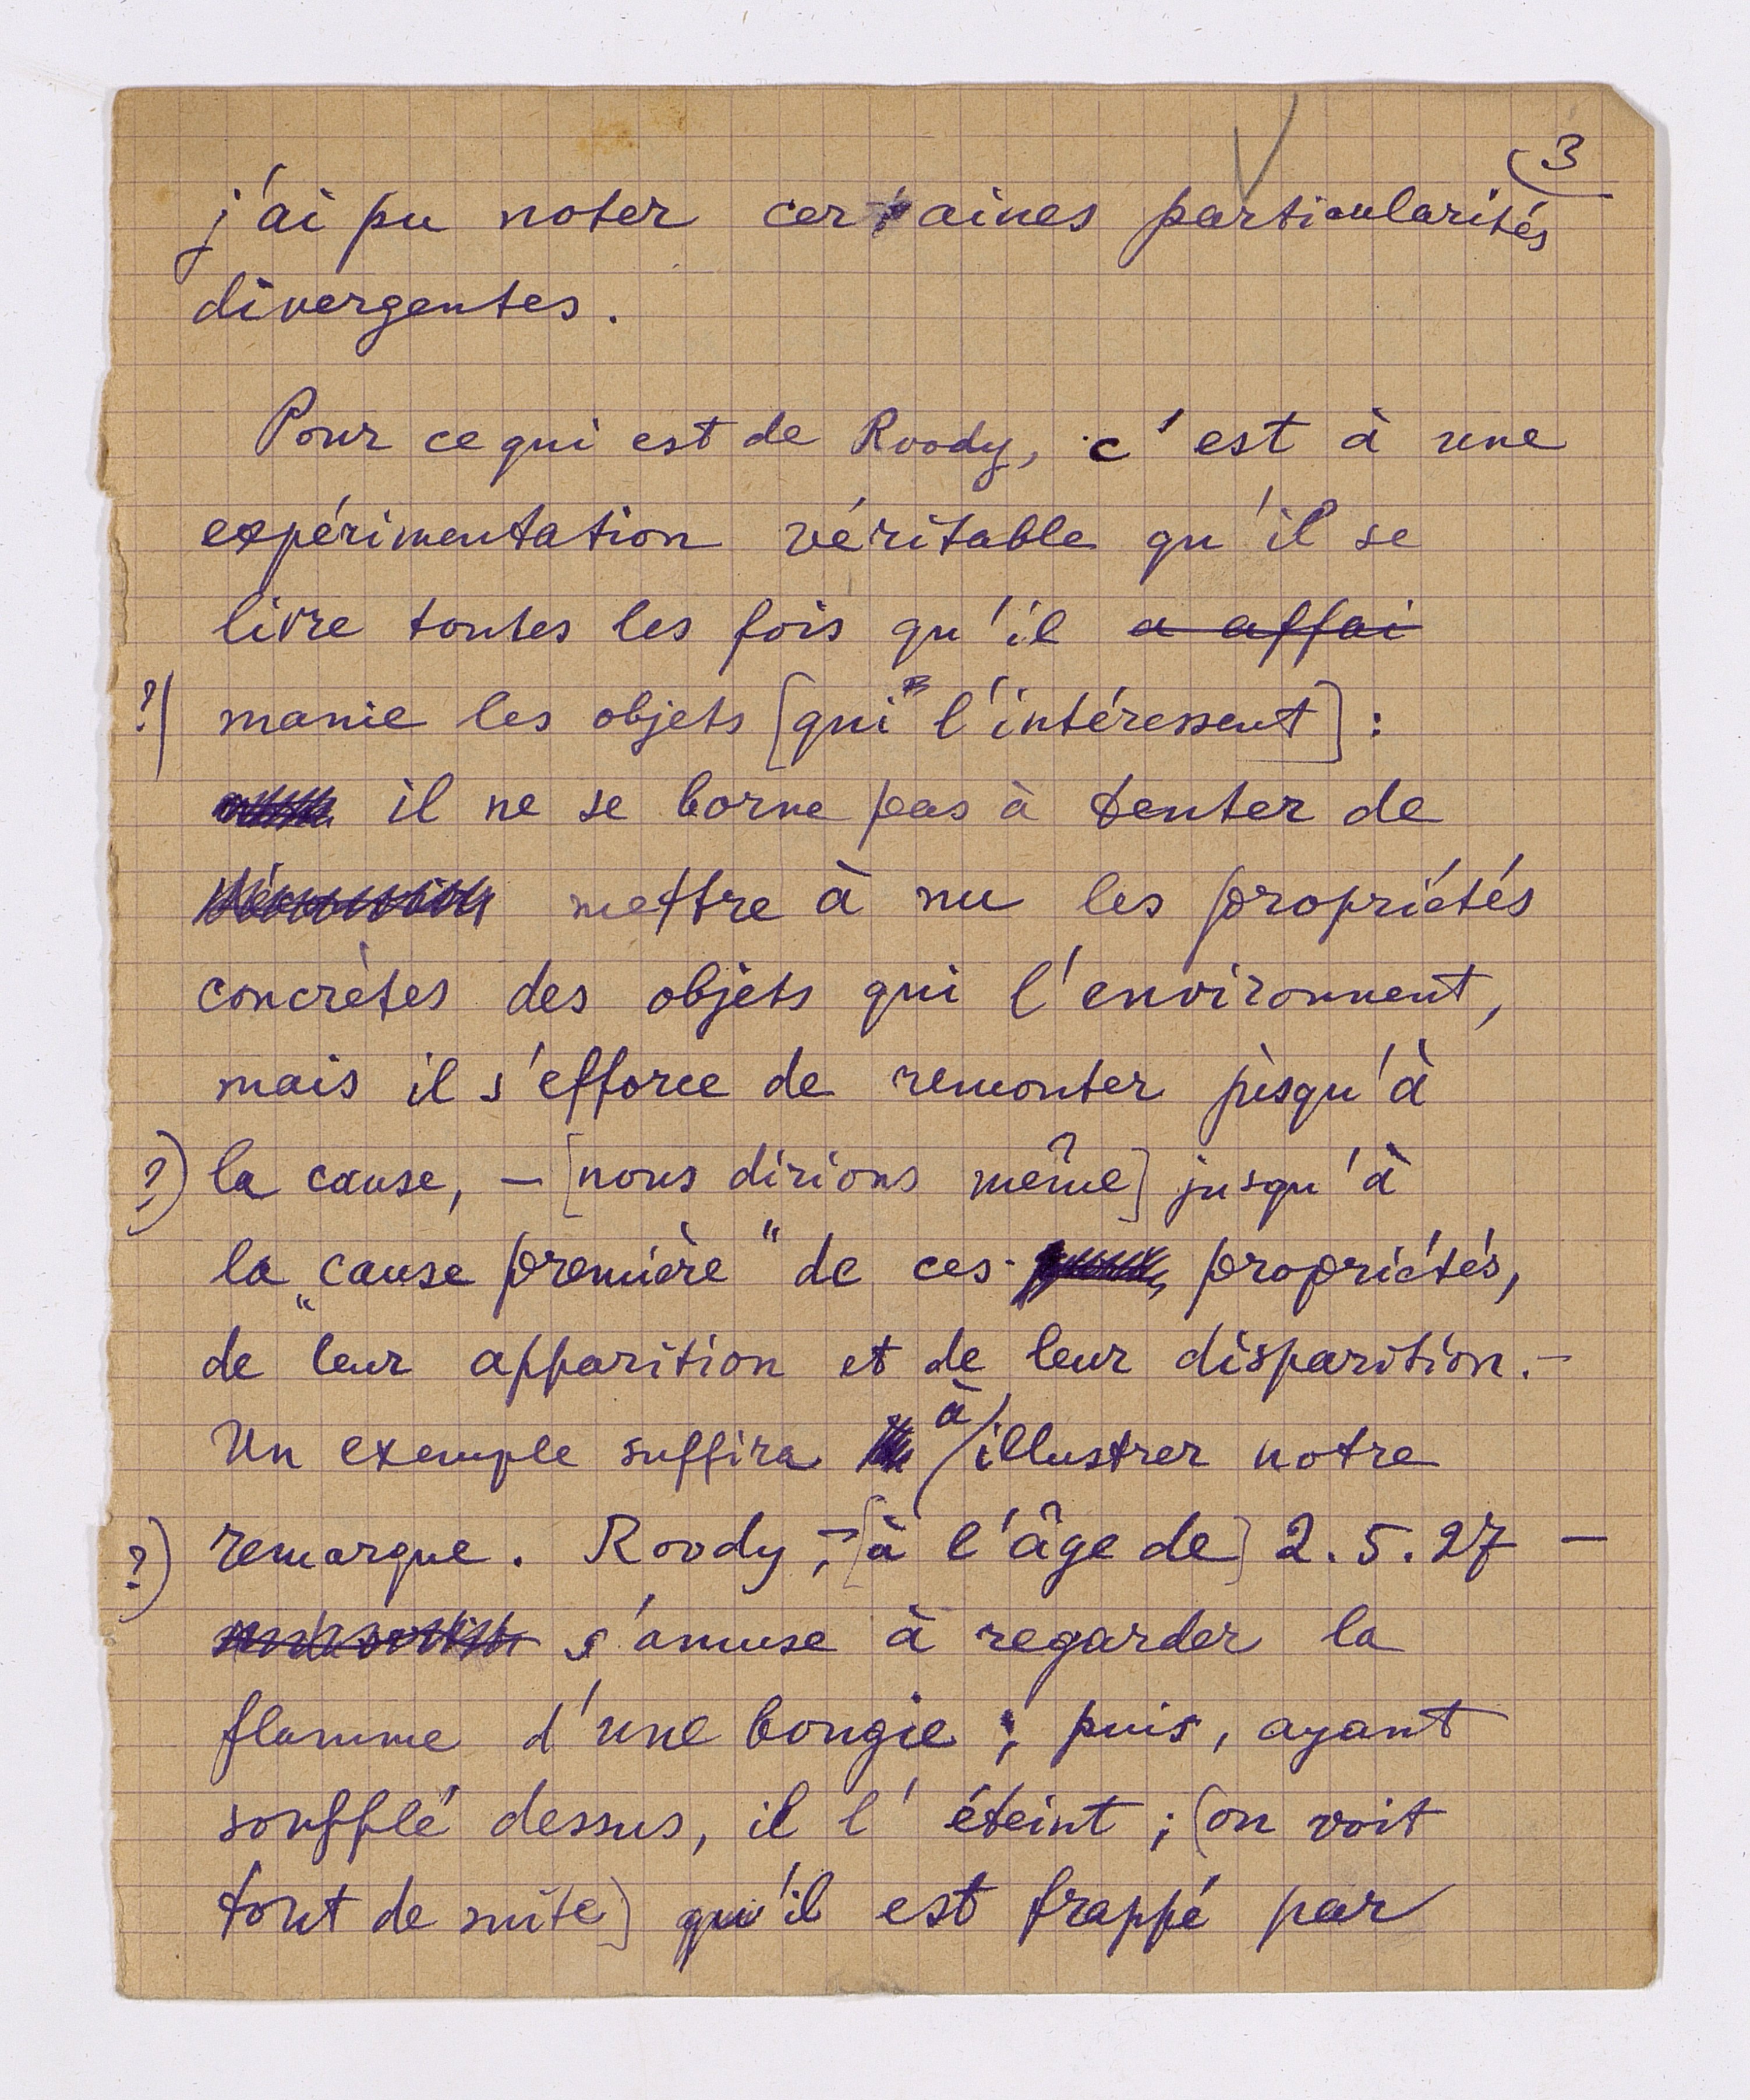 3
j'ai pu noter certaines particularités
divergentes.
Pour ce qui est de Roody, c'est à une
expérimentation véritable qu'il se
livre toutes les fois qu'il a affai
?) manie les objets [qui l'intéressent] :
il ne se borne pas à tenter de
mettre à nu les propriétés
concrètes des objets qui l'environnent,
mais il s'efforce de remonter jusqu'à
?) la cause, – [nous dirions même] jusqu'à
la „cause première" de ces propriétés,
de leur apparition et de leur disparition. –
Un exemple suffira à illustrer notre
?) remarque. Roody, – [à l'âge de] 2.5.27 –
s'amuse à regarder la
flamme d'une bougie ; puis, ayant
soufflé dessus, il l'éteint ; [on voit
tout de suite] qu'il est frappé par